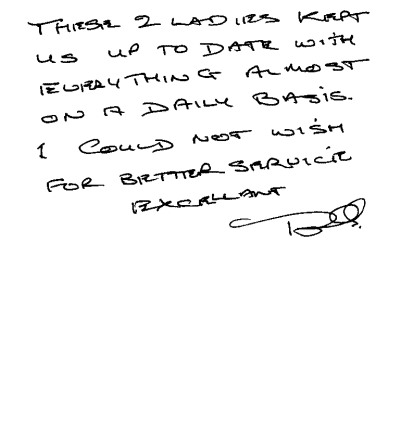 THESE 2 LADIES KEPT
US UP TO DATE WITH
EVERYTHING ALMOST
ON A DAILY BASIS.
I COULD NOT WISH
FOR BETTER SERVICE
EXCELLANT